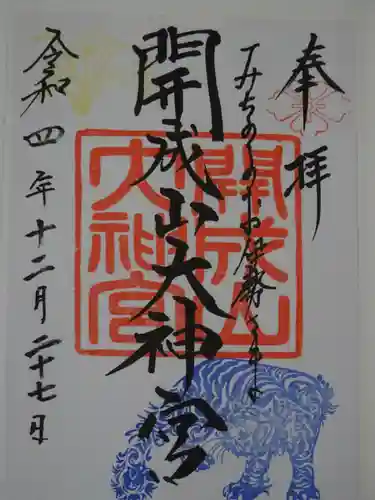 奉拝
みちのくのお伊勢さま
開成山大神宮
令和四年十二月二十七日
開成山
大神宮